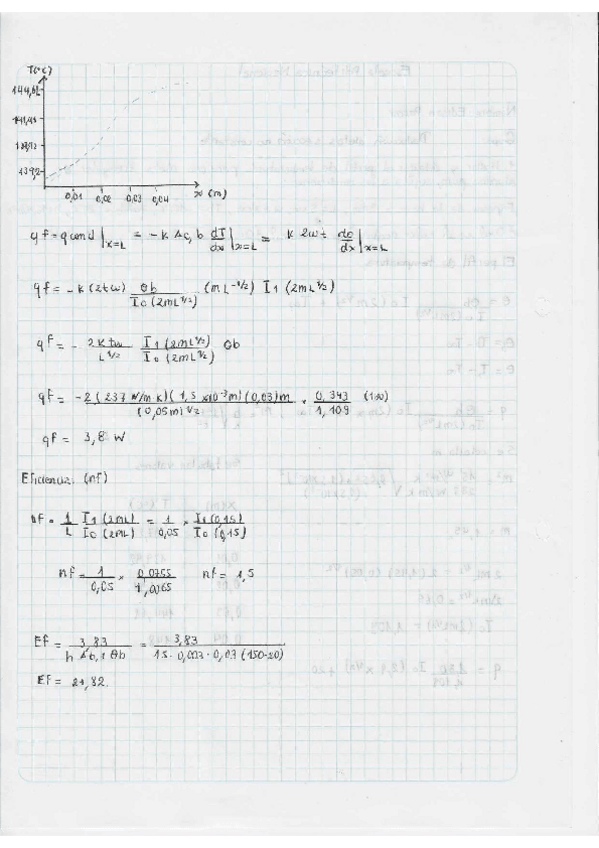 T(°C)
144,62
141,45
139,2
0,01 0,02 0,03 0,04 x (m)
qf = q cond |x=L = -k Ac, b dT/dx |x=L = k 2wt dθ/dx |x=L
qf = -k (2tw) θb / I₀ (2mL^1/2) (mL^-1/2) I₁ (2mL^1/2)
qf = - 2ktw / L^1/2 I₁ (2mL^1/2) / I₀ (2mL^1/2) θb
qf = -2 (237 W/m K) (1,5 x10⁻³m) (0,03)m / (0,05m)^1/2 x 0,343 / 1,109 (130)
qf = 3,8 W
Eficiencia (nf)
nf = 1/L I₁ (2mL) / I₀ (2mL) = 1/0,05 x I₁ (0,15) / I₀ (0,15)
nf = 1/0,05 x 0,0755 / 1,0065 nf = 1,5
Ef = 3,83 / h Ab,t θb = 3,83 / 15 · 0,003 · 0,03 (150-20)
Ef = 21,82